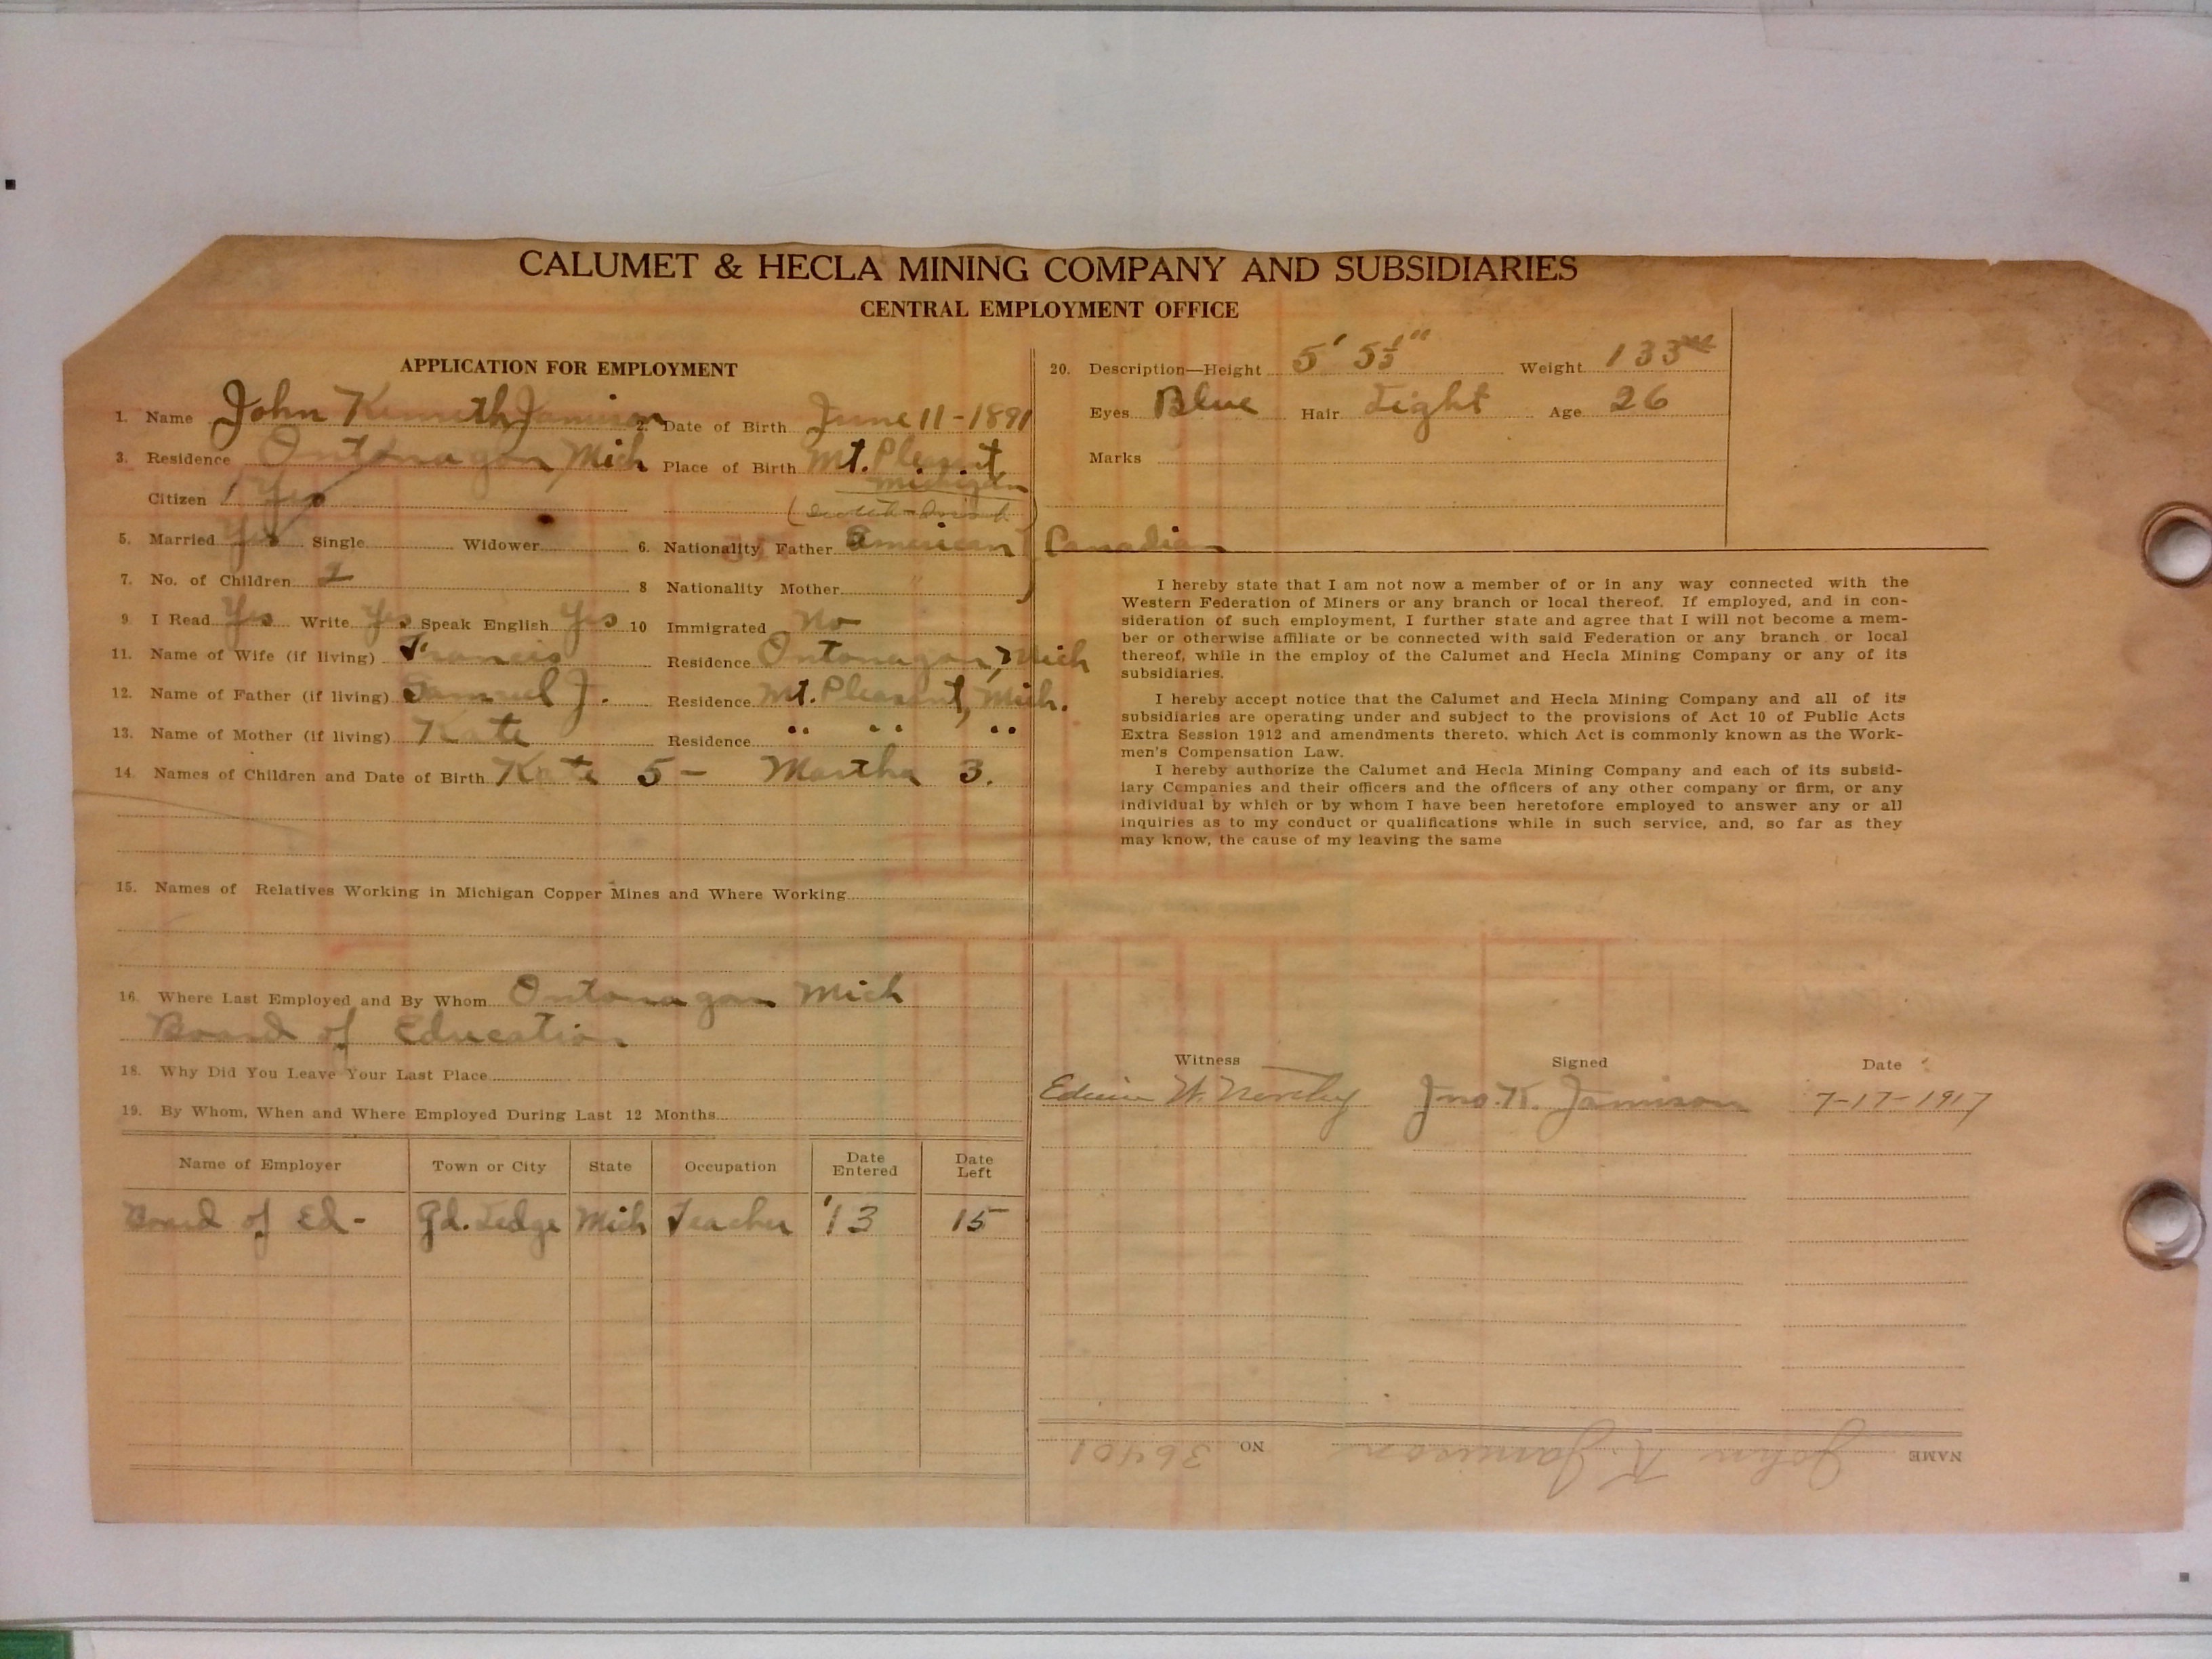 CALUMET & HECLA MINING COMPANY AND SUBSIDIARIES
CENTRAL EMPLOYMENT OFFICE
APPLICATION FOR EMPLOYMENT
1. Name John Kenneth Jamison 2. Date of Birth June 11-1891
3. Residence Ontonagon, Mich Place of Birth Mt. Pleasant
Michigan
Citizen Yes
5. Married Yes Single Widower 6. Nationality Father American Canadian
7. No. of Children 2 8 Nationality Mother "
9. I Read Yes Write Yes Speak English Yes 10 Immigrated No
11. Name of Wife (if living) Francis Residence Ontonagon, Mich
12. Name of Father (if living) Samuel J. Residence Mt. Pleasant, Mich.
13. Name of Mother (if living) Kate Residence " " "
14 Names of Children and Date of Birth Kate 5- Martha 3.
15. Names of Relatives Working in Michigan Copper Mines and Where Working
16. Where Last Employed and By Whom Ontonagon Mich
Board of Education
18. Why Did You Leave Your Last Place
19. By Whom, When and Where Employed During Last 12 Months
Name of Employer Town or City State Occupation Date Entered Date Left
Board of Ed- Gd. Ledge Mich Teacher '13 15
20. Description—Height 5' 5½" Weight 133
Eyes Blue Hair Light Age 26
Marks
I hereby state that I am not now a member of or in any way connected with the
Western Federation of Miners or any branch or local thereof. If employed, and in con-
sideration of such employment, I further state and agree that I will not become a mem-
ber or otherwise affiliate or be connected with said Federation or any branch or local
thereof, while in the employ of the Calumet and Hecla Mining Company or any of its
subsidiaries.
I hereby accept notice that the Calumet and Hecla Mining Company and all of its
subsidiaries are operating under and subject to the provisions of Act 10 of Public Acts
Extra Session 1912 and amendments thereto, which Act is commonly known as the Work-
men's Compensation Law.
I hereby authorize the Calumet and Hecla Mining Company and each of its subsid-
iary Companies and their officers and the officers of any other company or firm, or any
individual by which or by whom I have been heretofore employed to answer any or all
inquiries as to my conduct or qualifications while in such service, and, so far as they
may know, the cause of my leaving the same
Witness Signed Date
Edwin W. Jno. K. Jamison 7-17-1917
NAME John K. Jamison NO. 36401